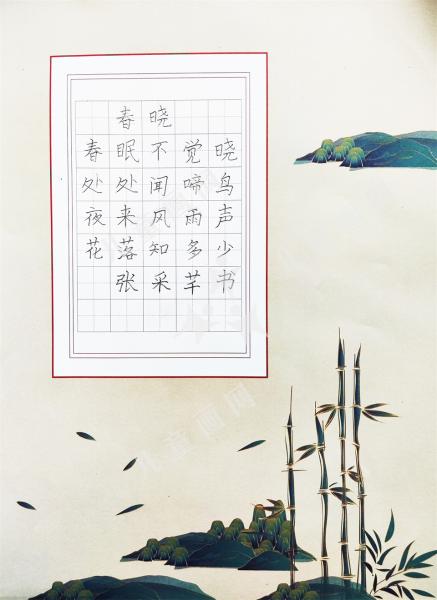 春晓
春眠不觉晓
处处闻啼鸟
夜来风雨声
花落知多少
张采芊书